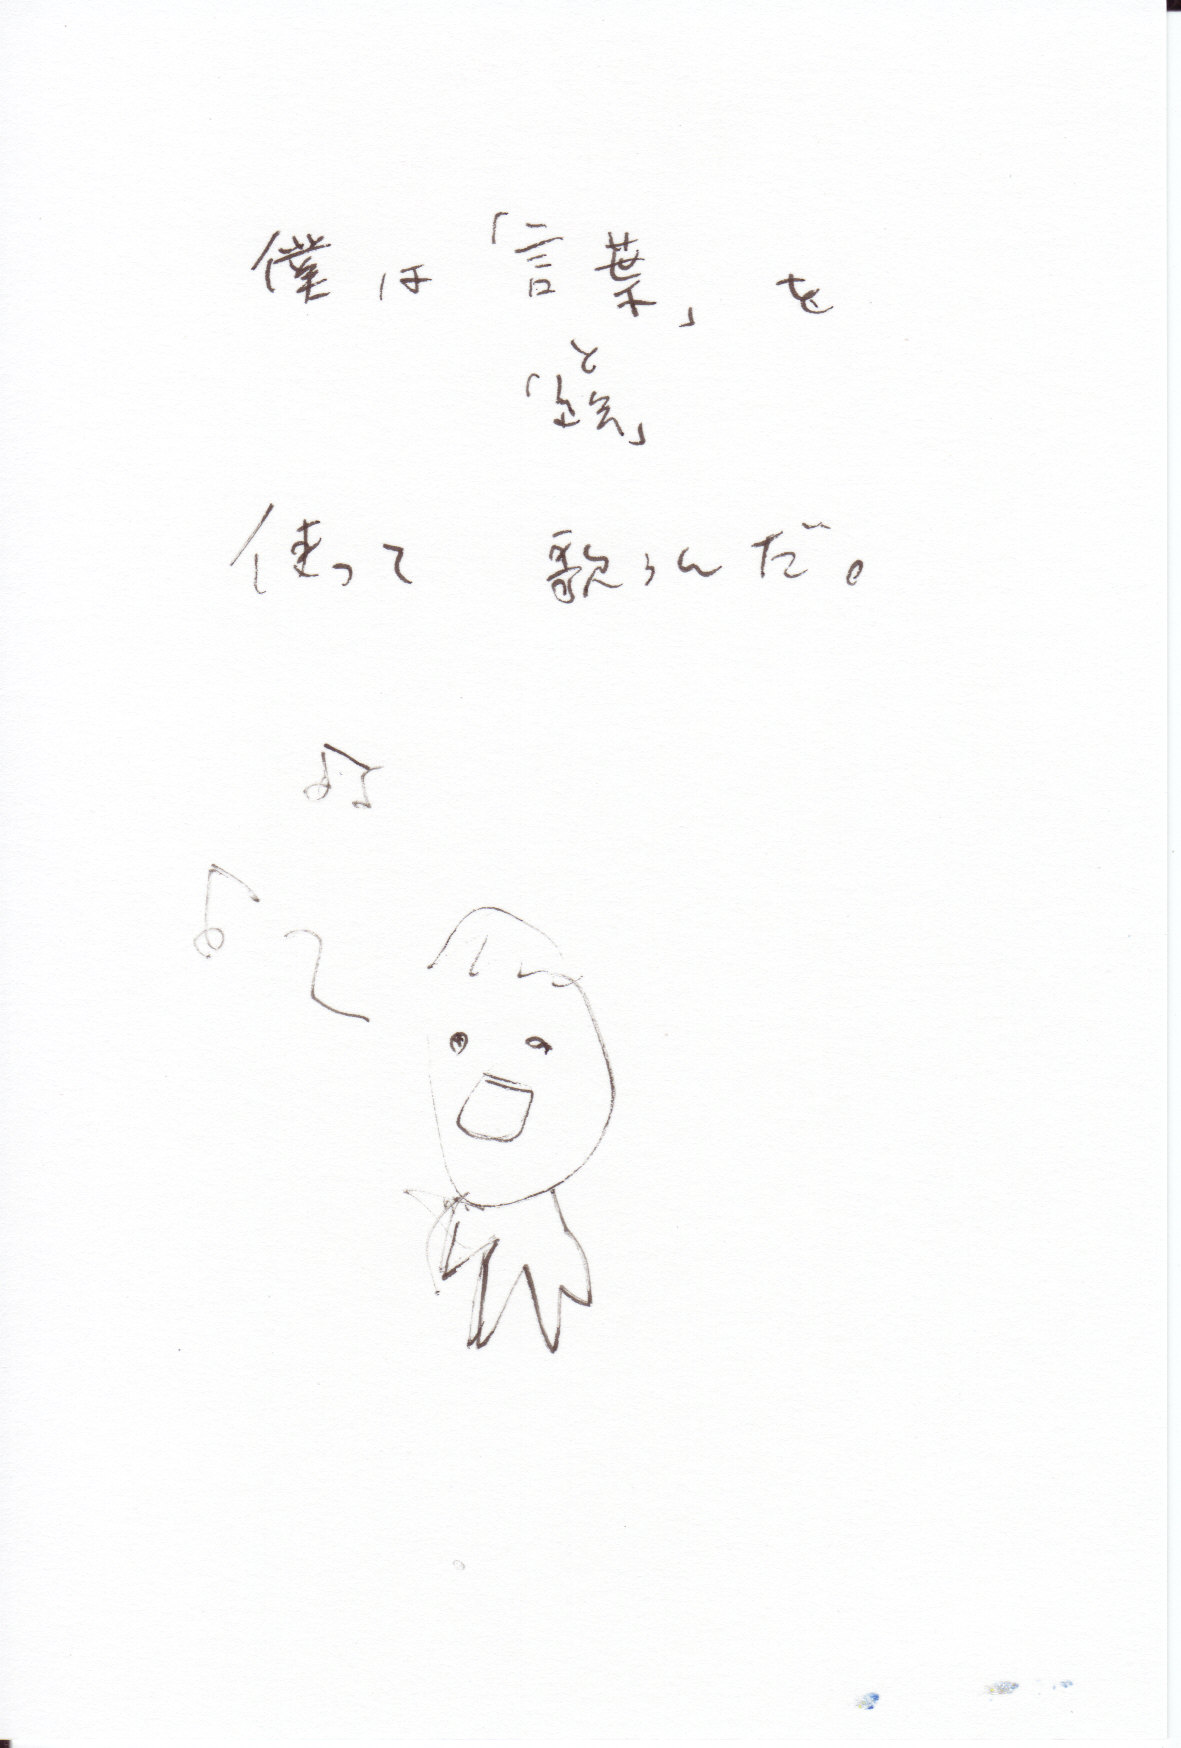 僕は「言葉」を
と
「絵」
使って 歌うんだ。